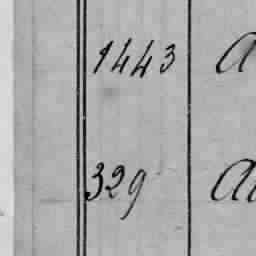 1443 A
329 A